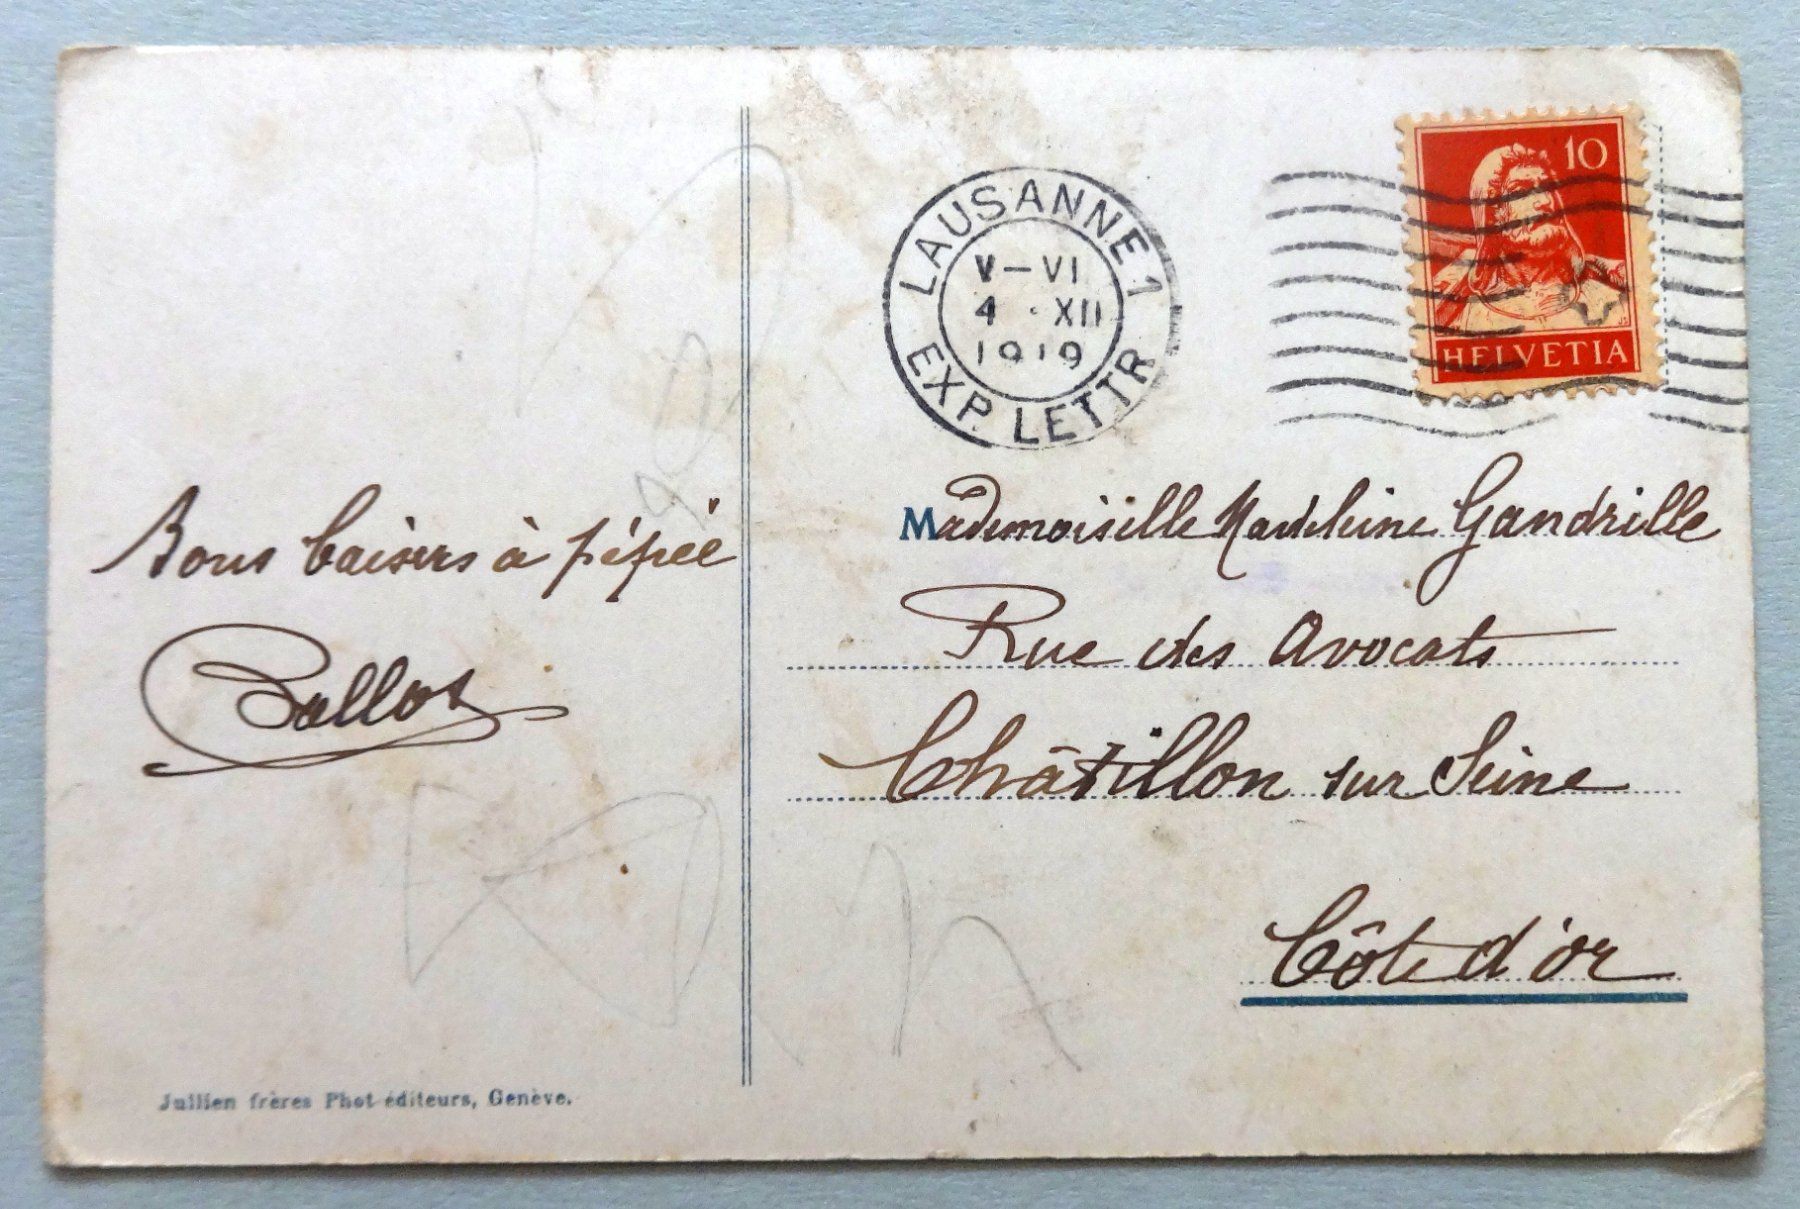 Bons baisers à pépée
Ballot
Jullien frères Phot-éditeurs, Genève.
LAUSANNE 1
V-VI
4 · XII
1919
EXP. LETTR
10
HELVETIA
Mademoiselle Madeleine Gandrille
Rue des Avocats
Châtillon sur Seine
Côte d'or